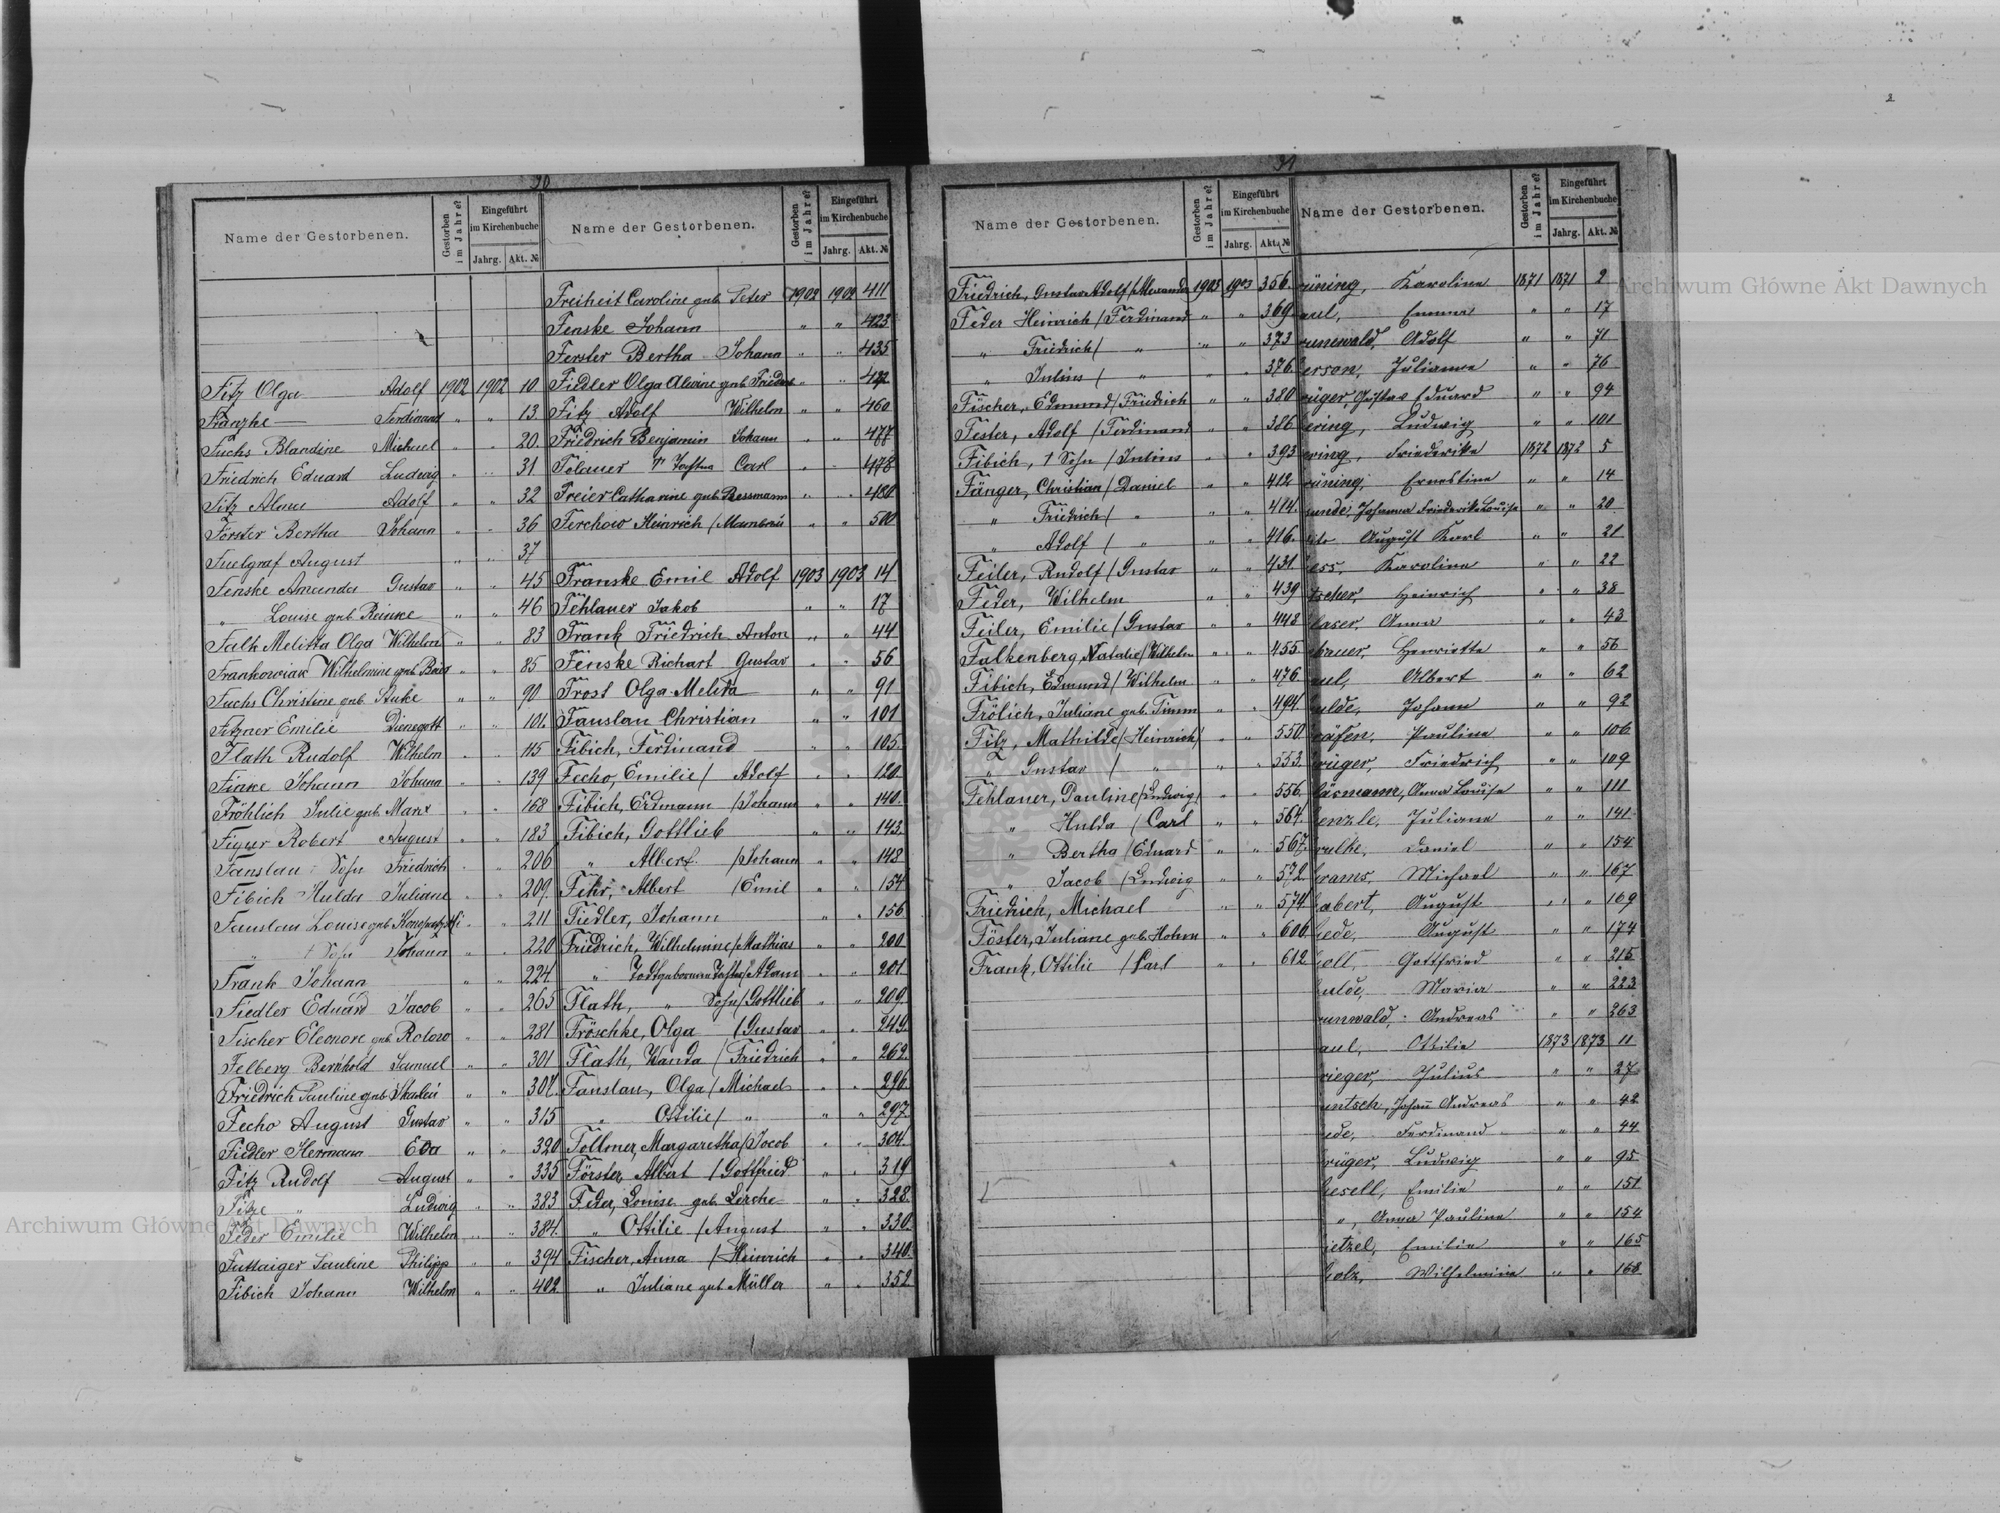 90
Name der Gestorbenen.
Gestorben im Jahre?
Eingeführt im Kirchenbuche
Jahrg. Akt. №
Fitz Olga Adolf 1902 1902 10
Ferdinand " " 13
Fuchs Blandine Michael " " 20
Friedrich Eduard Ludwig " " 31
Fitz Alma Adolf " " 32
Förster Bertha Johann " " 36
August " " 37
Fenske Amanda Gustav " " 45
" Louise geb. Reinke " " 46
Falk Melitta Olga Wilhelm " " 83
Frankowiak Wilhelmine geb. " " 85
Fuchs Christine geb. " " 90
Fitzner Emilie Dienegott " " 101.
Flath Rudolf Wilhelm " " 115
Finke Johann Johann " " 139
Fröhlich Julie geb. Marx " " 168
Robert August " " 183
Fanslau Sohn Friedrich " " 206
Fibich Hulda Juliane " " 209.
Fanslau Louise geb. " " 211
" Sohn Johann " " 220
Frank Johann " " 224.
Fiedler Eduard Jacob " " 265
Fischer Eleonore geb. " " 281
Felberg Bernhold Samuel " " 301
Friedrich Pauline geb. " " 307.
Fecho August Gustav " " 315
Fiedler Hermann Eva " " 320
Fitz Rudolf August " " 335
Fitze " Ludwig " " 383
Feder Emilie Wilhelm " " 384.
Pauline Philipp " " 394
Fibich Johann Wilhelm " " 402
Name der Gestorbenen.
Gestorben im Jahre?
Eingeführt im Kirchenbuche
Jahrg. Akt. №
Freiheit Caroline geb. Peter 1902 1902 411
Fenske Johann " " 423
Ferster Bertha Johann " " 435
Fiedler Olga Alwine geb. " "
Fitz Adolf Wilhelm " " 460
Friedrich Benjamin Johann " " 477
Carl " " 478
Freier Catharine geb. Bessmann " " 480
Ferchow Heinrich / " " 500
Franske Emil Adolf 1903 1903 14
Fehlauer Jakob " " 17
Frank Friedrich Anton " " 44
Fenske Richart Gustav " " 56
Frost Olga Melida " " 91
Fanslau Christian " " 101
Fibich, Ferdinand " " 105.
Fecho, Emilie / Adolf " " 120
Fibich, Erdmann / Johann " " 140.
Fibich, Gottlieb " " 143.
" Albert / Johann " " 148
Fehr, Albert / Emil " " 154
Fiedler, Johann " " 156
Friedrich, Wilhelmine / Mathias " " 200
" Todtgeborene Tochter / Adam " " 201
Flath, " Sohn / Gottlieb " " 209.
Fröschke, Olga / Gustav " " 249.
Flath, Wanda / Friedrich " " 269.
Fanslau, Olga / Michael " " 296
" Ottilie / " " " 297.
Follmer, Margaretha / Jacob " " 304.
Förster, Albert / Gottfried " " 319
Feder, Louise geb. Lerche " " 328.
" Ottilie / August " " 330.
Fischer, Anna / Heinrich " " 340.
" Juliane geb. Müller " " 352
91
Name der Gestorbenen.
Gestorben im Jahre?
Eingeführt im Kirchenbuche
Jahrg. Akt. №
Friedrich, Gustav Adolf / 1903 1903 356.
Feder Heinrich / Ferdinand " " 369.
" Friedrich / " " " 373
" Julius / " " " 376.
Fischer, Edmund / Friedrich " " 380
Fester, Adolf / Ferdinand " " 386
Fibich, 1 Sohn / Julius " " 393
Fänger, Christian / Daniel " " 412
" Friedrich / " " " 414.
" Adolf / " " " 416.
Feiler, Rudolf / Gustav " " 431.
Feder, Wilhelm " " 439
Feiler, Emilie / Gustav " " 448
Falkenberg, Natalie / Wilhelm " " 455
Fibich, Edmund / Wilhelm " " 476
Frölich, Juliane geb. Timm " " 494.
Fitz, Mathilde / Heinrich / " " 550.
" Gustav / " " " 553.
Fehlauer, Pauline / Ludwig / " " 556.
" Hulda / Carl " " 564.
" Bertha / Eduard " " 567.
" Jacob / Ludwig " " 572.
Friedrich, Michael " " 574.
Föster, Juliane geb. Hohm " " 606.
Frank, Ottilie / Carl " " 612
Name der Gestorbenen.
Gestorben im Jahre?
Eingeführt im Kirchenbuche
Jahrg. Akt. №
üning, Karoline 1871 1871 2
aul, Emma " " 17
runewald, Adolf " " 71
erson, Julianna " " 76
rüger, Gustav Eduard " " 94
ering, Ludwig " " 101
ering, Friederike 1872 1872 5
üning, Ernestine " " 14
unde, Johanna Friederike Louise " " 20
August Karl " " 21
ess, Karoline " " 22
tscher, Heinrich " " 38
laser, Anna " " 43
brauer, Henriette " " 56
aul, Albert " " 62
ulde, Johann " " 92
räfen, Pauline " " 106
rüger, Friedrich " " 109
läsmann, Anna Louise " " 111
enzle, Juliane " " 141
rulke, Daniel " " 154
rams, Michael " " 167
abert, August " " 169
iede, August " " 174
oll, Gottfried " " 215
ulde, Maria " " 223
runwald, Andreas " " 263
aul, Ottilie 1873 1873 11
rieger, Julius " " 27
untsch, Johann Andreas " " 42
iede, Ferdinand " " 44
rüger, Ludwig " " 95
esell, Emilie " " 151
", Anna Pauline " " 154
ietzel, Emilie " " 165
olz, Wilhelmine " " 168
Archiwum Główne Akt Dawnych
Archiwum Główne Akt Dawnych